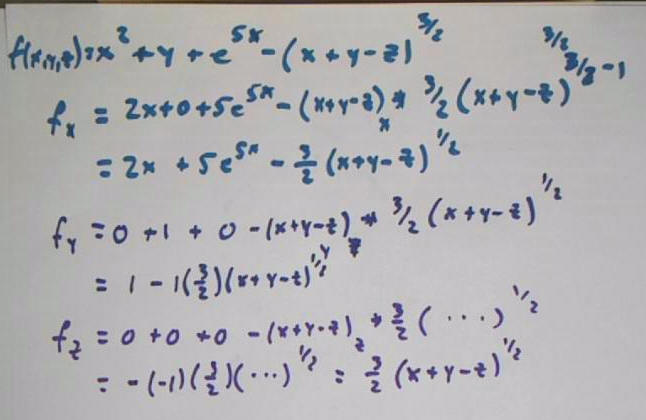 f(x,y,z) = x² + y + e^5x - (x + y - z)^3/2
3/2
f_x = 2x + 0 + 5e^5x - (x+y-z)_x * 3/2 (x + y - z)^3/2 - 1
= 2x + 5e^5x - 3/2 (x + y - z)^1/2
f_y = 0 + 1 + 0 - (x+y-z)_y * 3/2 (x + y - z)^1/2
= 1 - 1(3/2)(x + y - z)^1/2
f_z = 0 + 0 + 0 - (x+y-z)_z * 3/2 (...)^1/2
= -(-1)(3/2)(...)^1/2 = 3/2 (x + y - z)^1/2